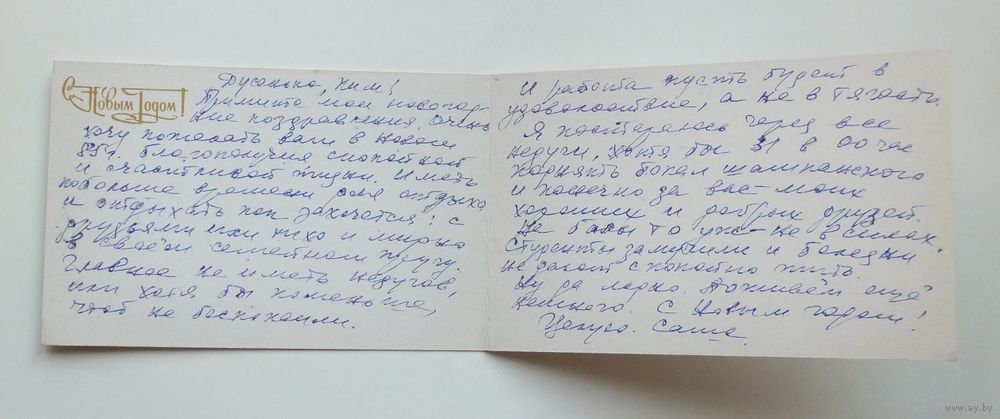 С Новым Годом
Дусенька, Ким!
Примите мои новогод-
ние поздравления. Очень
хочу пожелать вам в новом
85г. благополучия спокойной
и счастливой жизни. Иметь
побольше времени для отдыха
и отдыхать как захочется: с
друзьями или тихо и мирно
в своём семейном кругу.
Главное не иметь недугов,
или хотя бы поменьше,
чтоб не беспокоили.
И работа пусть будет в
удовольствие, а не в тягость.
Я постараюсь через все
недуги, хотя бы 31 в 00 час
поднять бокал шампанского
и конечно за вас – моих
хороших и добрых друзей.
На балы то уже – не в силах.
Студенты замучили и болезни
не дают спокойно жить.
Ну да ладно. Поживём ещё
немного. С Новым годом!
Целую. Саша.
www.ay.by